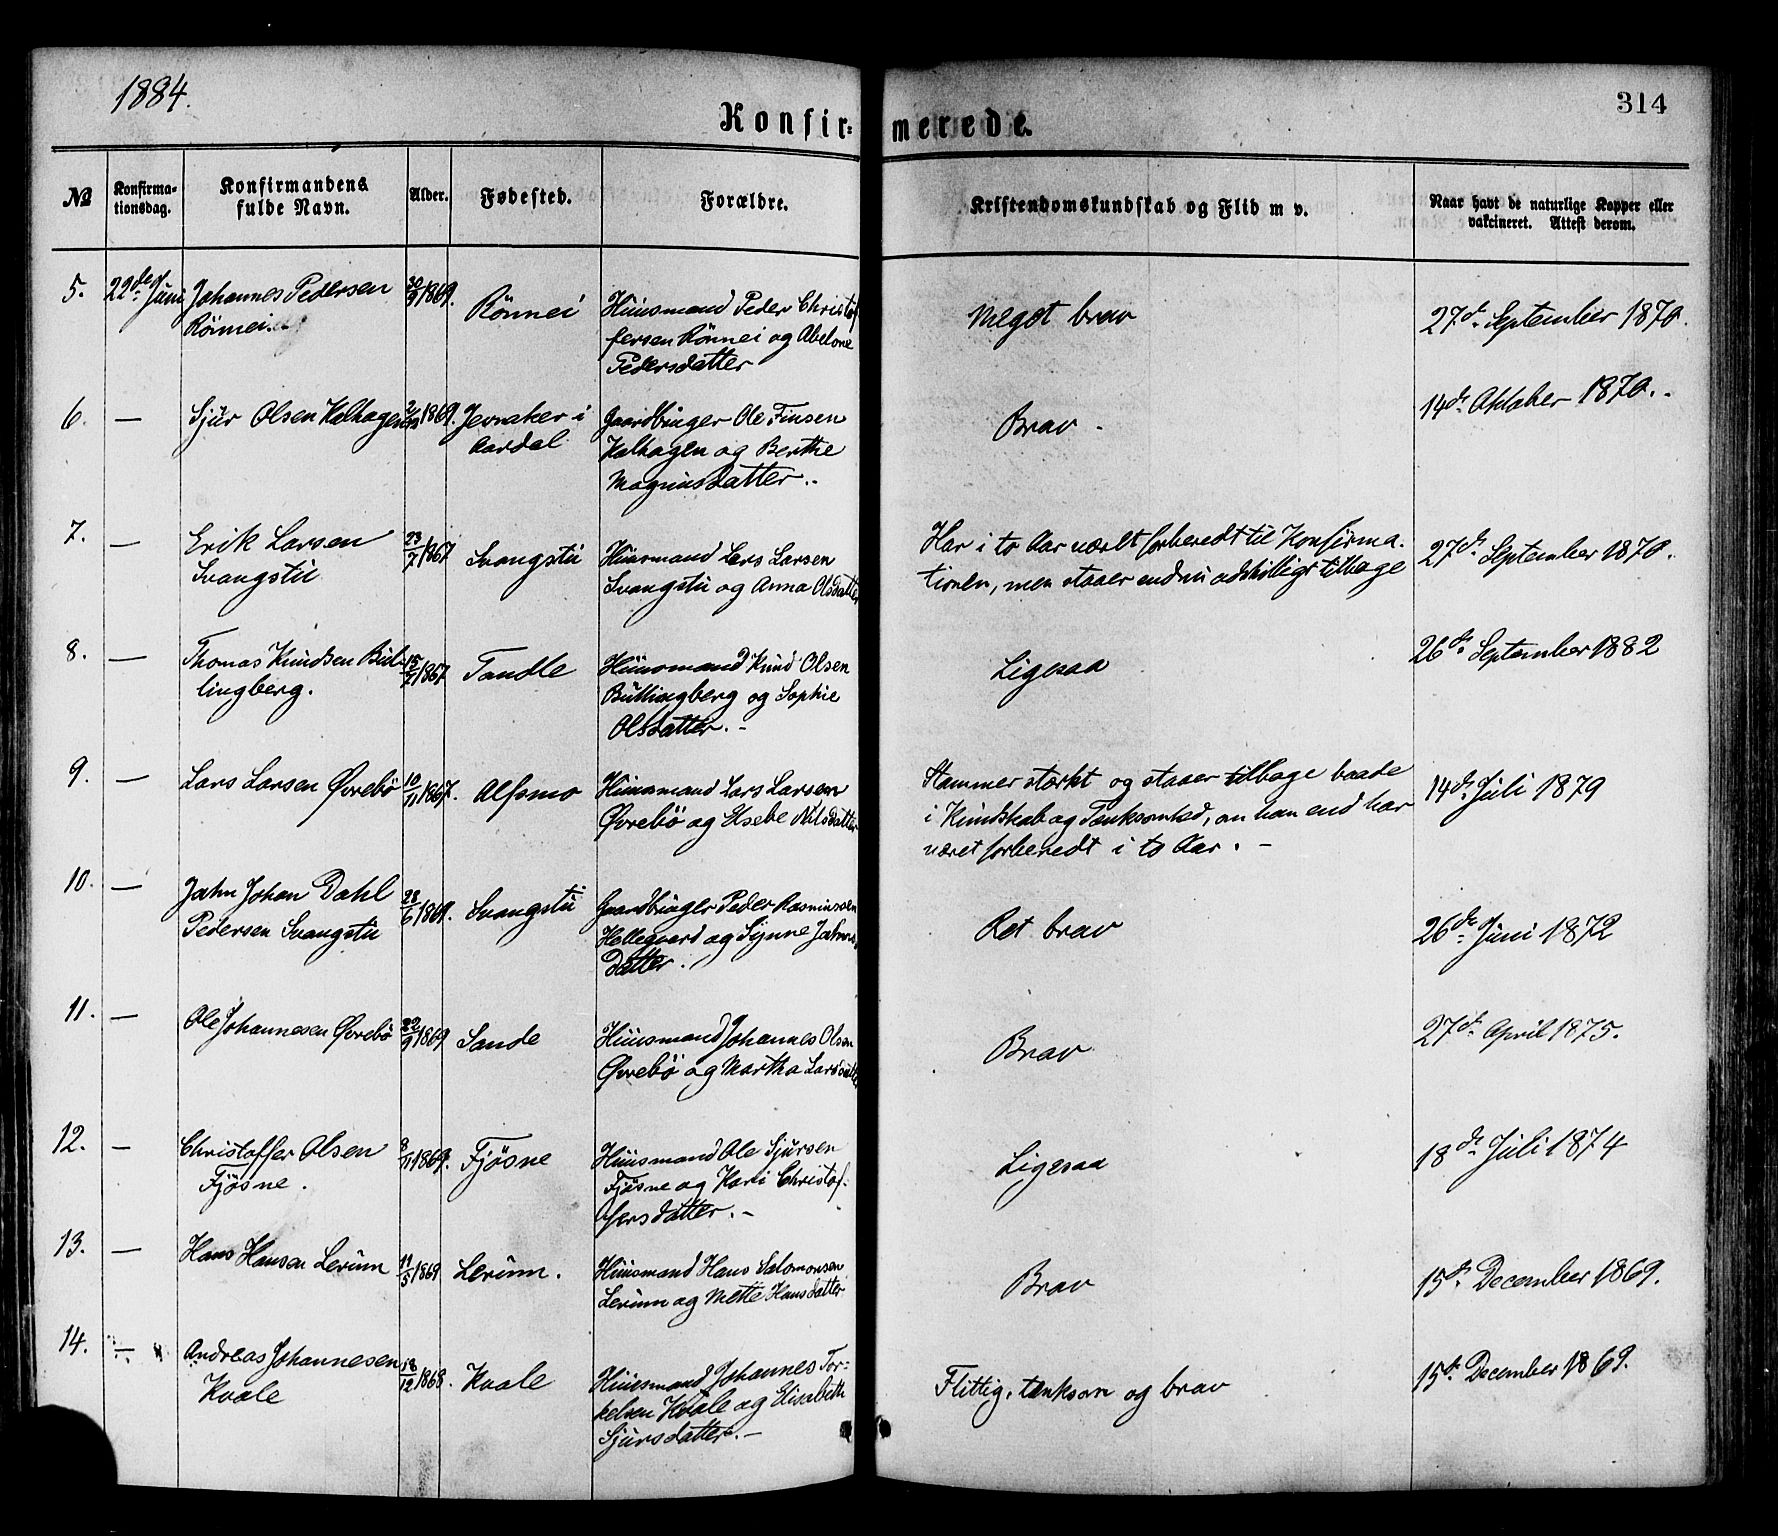 1884.
314
Konfir=
merede.
№
Konfirma-
tionsdag.
Konfirmandens
fulde Navn.
Alder.
Fødested.
Forældre.
Kristendomskundskab og Flid m v.
Naar havt de naturlige Kopper eller
vakcineret. Attest derom.
5. 22de Juni Johannes Pedersen 1869. Rönnei Huusmand Peder Christof Meget brav 27de September 1870.
Rönnei. fersen Rönnei og Abelone
Pedersdatter
6. — Sjur Olsen Kalhagen 1869. Jevnaker i Gaardbruger Ole Finsen Brav. 14de Oktober 1870.
Aardal Kalhagen og Berthe
Magnusdatter.
7. — Erik Larsen 23/7 1867 Svangstu Huusmand Lars Larsen Har i to Aar værlt forberedt til Konfirma- 27de September 1870.
Svangstu Svangstu og Anna Olsdatter tionen, men staaer endnu adskilligt tilbage
8. — Thomas Knudsen Bul- 15/7 1867 Tandle Huusmand Knud Olsen Ligesaa 26de September 1882
lingberg. Bullingberg og Sophie
Olsdatter. -
9. — Lars Larsen Øvrebö 10/11 1867. Alsmo Huusmand Lars Larsen Stammer stærkt og staaer tilbage baade 14de Juli 1879
Øvrebö og Elsebe Nilsdatter i Kundskab og Tænksomhed, om han end har
været forberedt i to Aar. -
10. — Jahn Johan Dahl 28/6 1869. Svangstu Gaardbruger Peder Rasmussen Ret brav 26de Juni 1872
Pedersen Svangstu Hellegaard og Synne Jahns
datter.
11. — Ole Johannesen Øvrebö 22/9 1869 Sande Huusmand Johannes Olsen Brav 27de April 1875.
Øvrebö og Martha Larsdatter
12. — Christoffer Olsen 8/11 1869. Fjösne Huusmand Ole Sjursen Ligesaa 18de Juli 1874
Fjösne. Fjösne og Kari Christof-
fersdatter. -
13. — Hans Hansen Lerum 11/5 1869 Lerum. Huusmand Hans Salomonsen Brav 15de December 1869.
Lerum og Mette Hansdatter
14. — Andreas Johannesen 18/12 1868. Kvale Huusmand Johannes Tor= Flittig, tænksom og brav 15de December 1869.
Kvale kelsen Kvale og Elisabeth
Sjursdatter. -